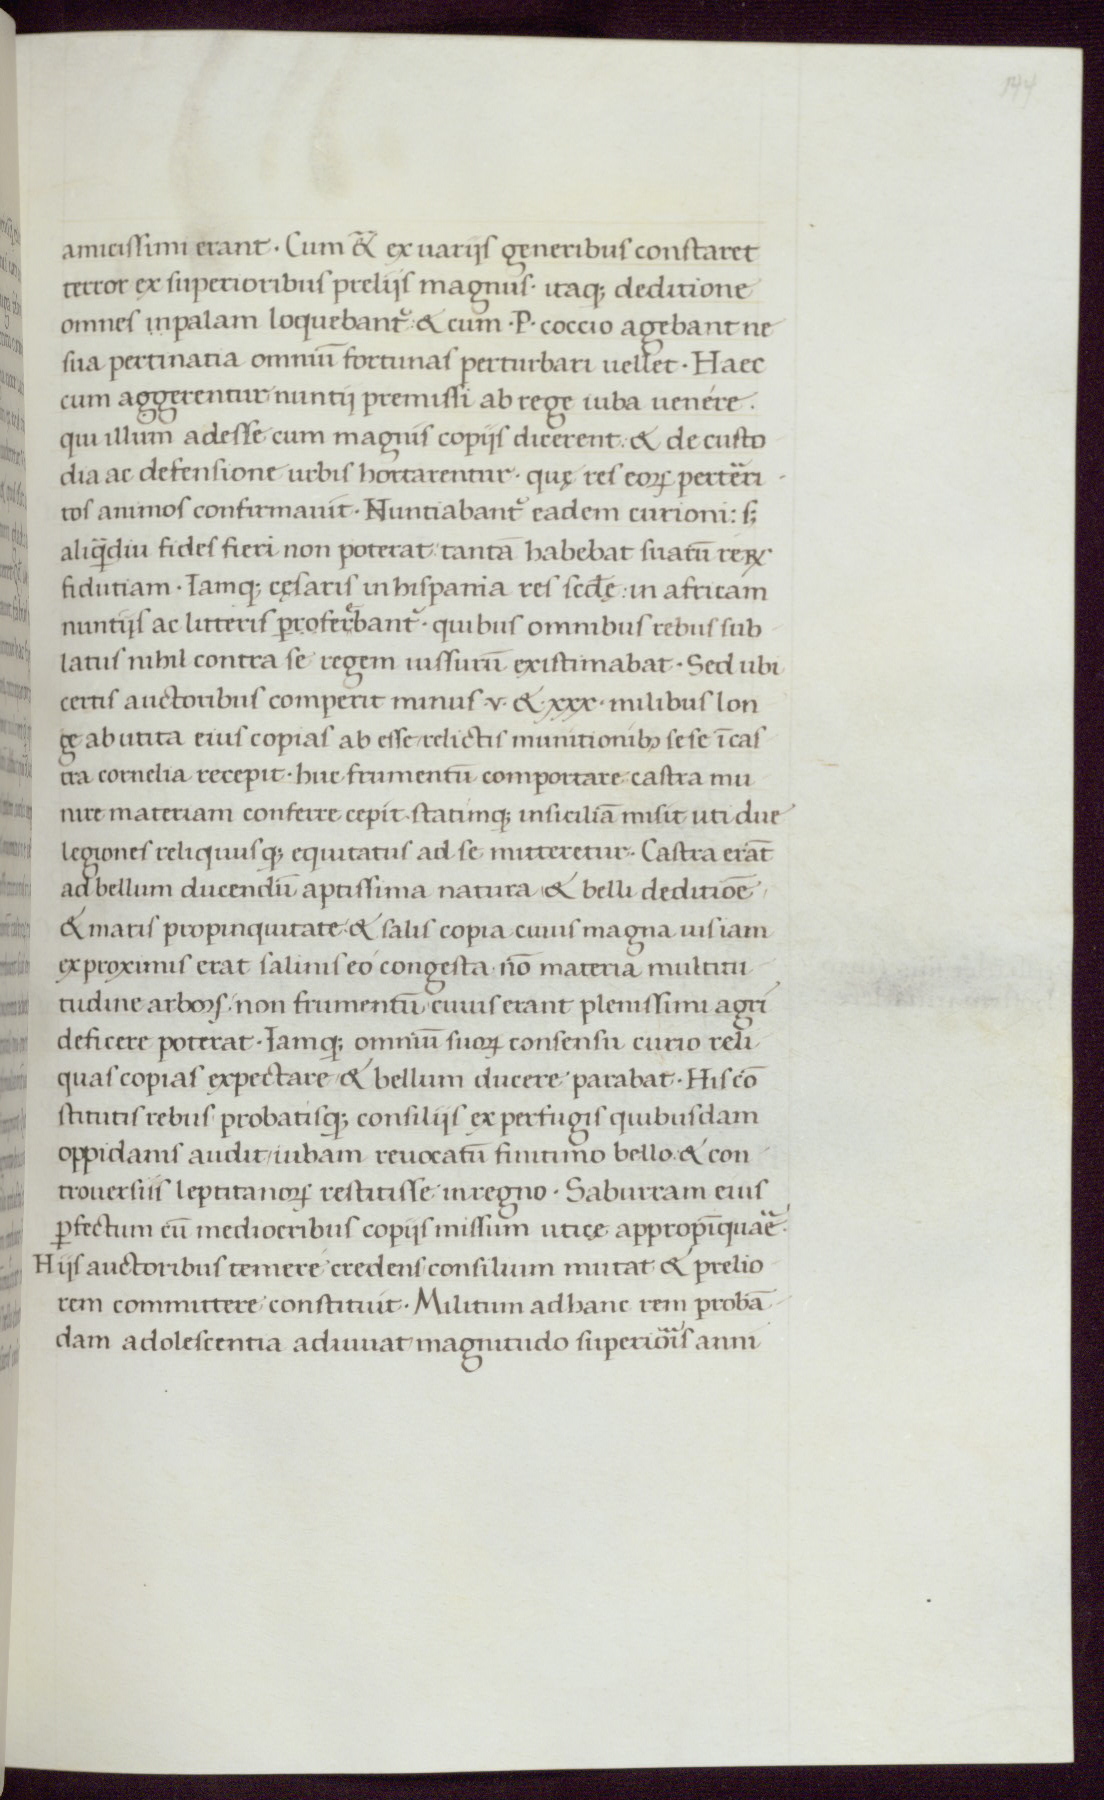 144
amicissimi erant · Cum &̃ ex uarijs generibus constaret
terror ex superioribus prelijs magnus · itaq; deditione
omnes inpalam loquebant᷑ · & cum · P · coccio agebant ne
sua pertinatia omniū fortunas perturbari uellet · Haec
cum aggerentur nuntij premissi ab rege iuba uenére .
qui illum adesse cum magnis copijs dicerent · & de custo
dia ac defensione urbis hortarentur · quę res eoꝝ perter̃i
tos animos confirmauit · Nuntiabant᷑ eadem curioni : s;
aliq̃diu fides fieri non poterat tantā habebat suaꝝ reꝝ
fidutiam · Iamq; cęsaris in hispania res secd̄ę : in africam
nuntijs ac litteris proferebant᷑ · quibus omnibus rebus sub
latus nihil contra se regem iussurū existimabat · Sed ubi
certis auctoribus comperit minus · v · & · xxx · milibus lon
ge ab utica eius copias ab esse relictis munitionibꝫ sese ī cas
tra cornelia recepit · huc frumentū comportare castra mu
nire materiam conferre cepit · statimq; in siciliā misit uti due
legiones reliquusq; equitatus ad se mitteretur · Castra erāt
ad bellum ducendū aptissima natura & belli deditiōe
& maris propinquitate & salis copia cuius magna uis iam
ex proximis erat salinis eo congesta · nō materia multitu
tudine arboꝝ · non frumentū cuius erant plenissimi agri
deficere poterat · Iamq; omniū suoꝝ consensu curio reli
quas copias expectare & bellum ducere parabat · His cō
stitutis rebus probatisq; consilijs ex perfugis quibusdam
oppidanis audit iubam reuocatū finitimo bello & con
trouersiis leptitanoꝝ restitisse in regno · Saburram eius
ꝑfectum cū mediocribus copijs missum uticę appropīquar̃e ·
Hijs auctoribus temere credens consilium mutat & prelio
rem committere constituit · Militum ad hanc rem probā
dam adolescentia adiuuat magnitudo superior̃is anni